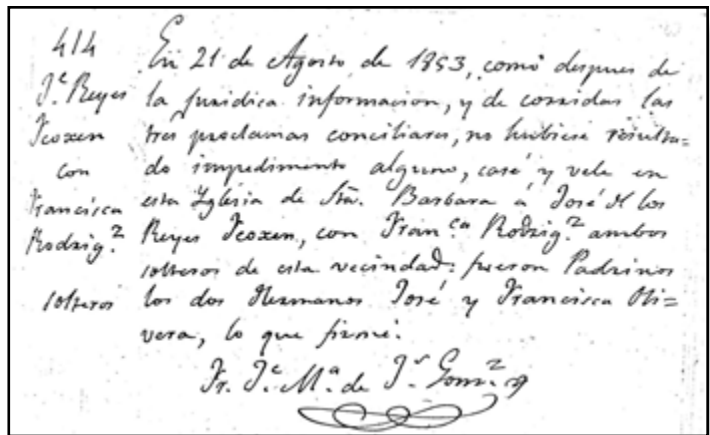 414
Je. Reyes
Icoxen
con
Francisca
Rodrig.z
solteros
En 21 de Agosto de 1853, como despues de
la juridica informacion, y de corridas las
tres proclamas conciliares, no hubiese resulta=
do impedimento alguno, casé y vele en
esta Yglesia de Sta. Barbara á José d los
Reyes Icoxen, con Fran.ca Rodrig.z ambos
solteros de esta vecindad: fueron Padrinos
los dos Hermanos José y Francisca Oli=
vera, lo que firmé.
Fr. Je. Ma. de Js. Gonz.z